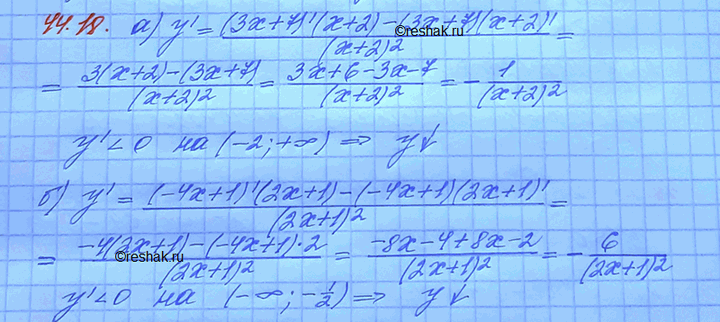 44.18. а) y' = ((3x+7)'(x+2) - (3x+7)(x+2)')/(x+2)² =
= (3(x+2) - (3x+7))/(x+2)² = (3x+6-3x-7)/(x+2)² = - 1/(x+2)²
y' < 0 на (-2; +∞) ⇒ y↓
б) y' = ((-4x+1)'(2x+1) - (-4x+1)(2x+1)')/(2x+1)² =
= (-4(2x+1) - (-4x+1)·2)/(2x+1)² = (-8x-4+8x-2)/(2x+1)² = - 6/(2x+1)²
y' < 0 на (-∞; -1/2) ⇒ y↓
©reshak.ru
©reshak.ru